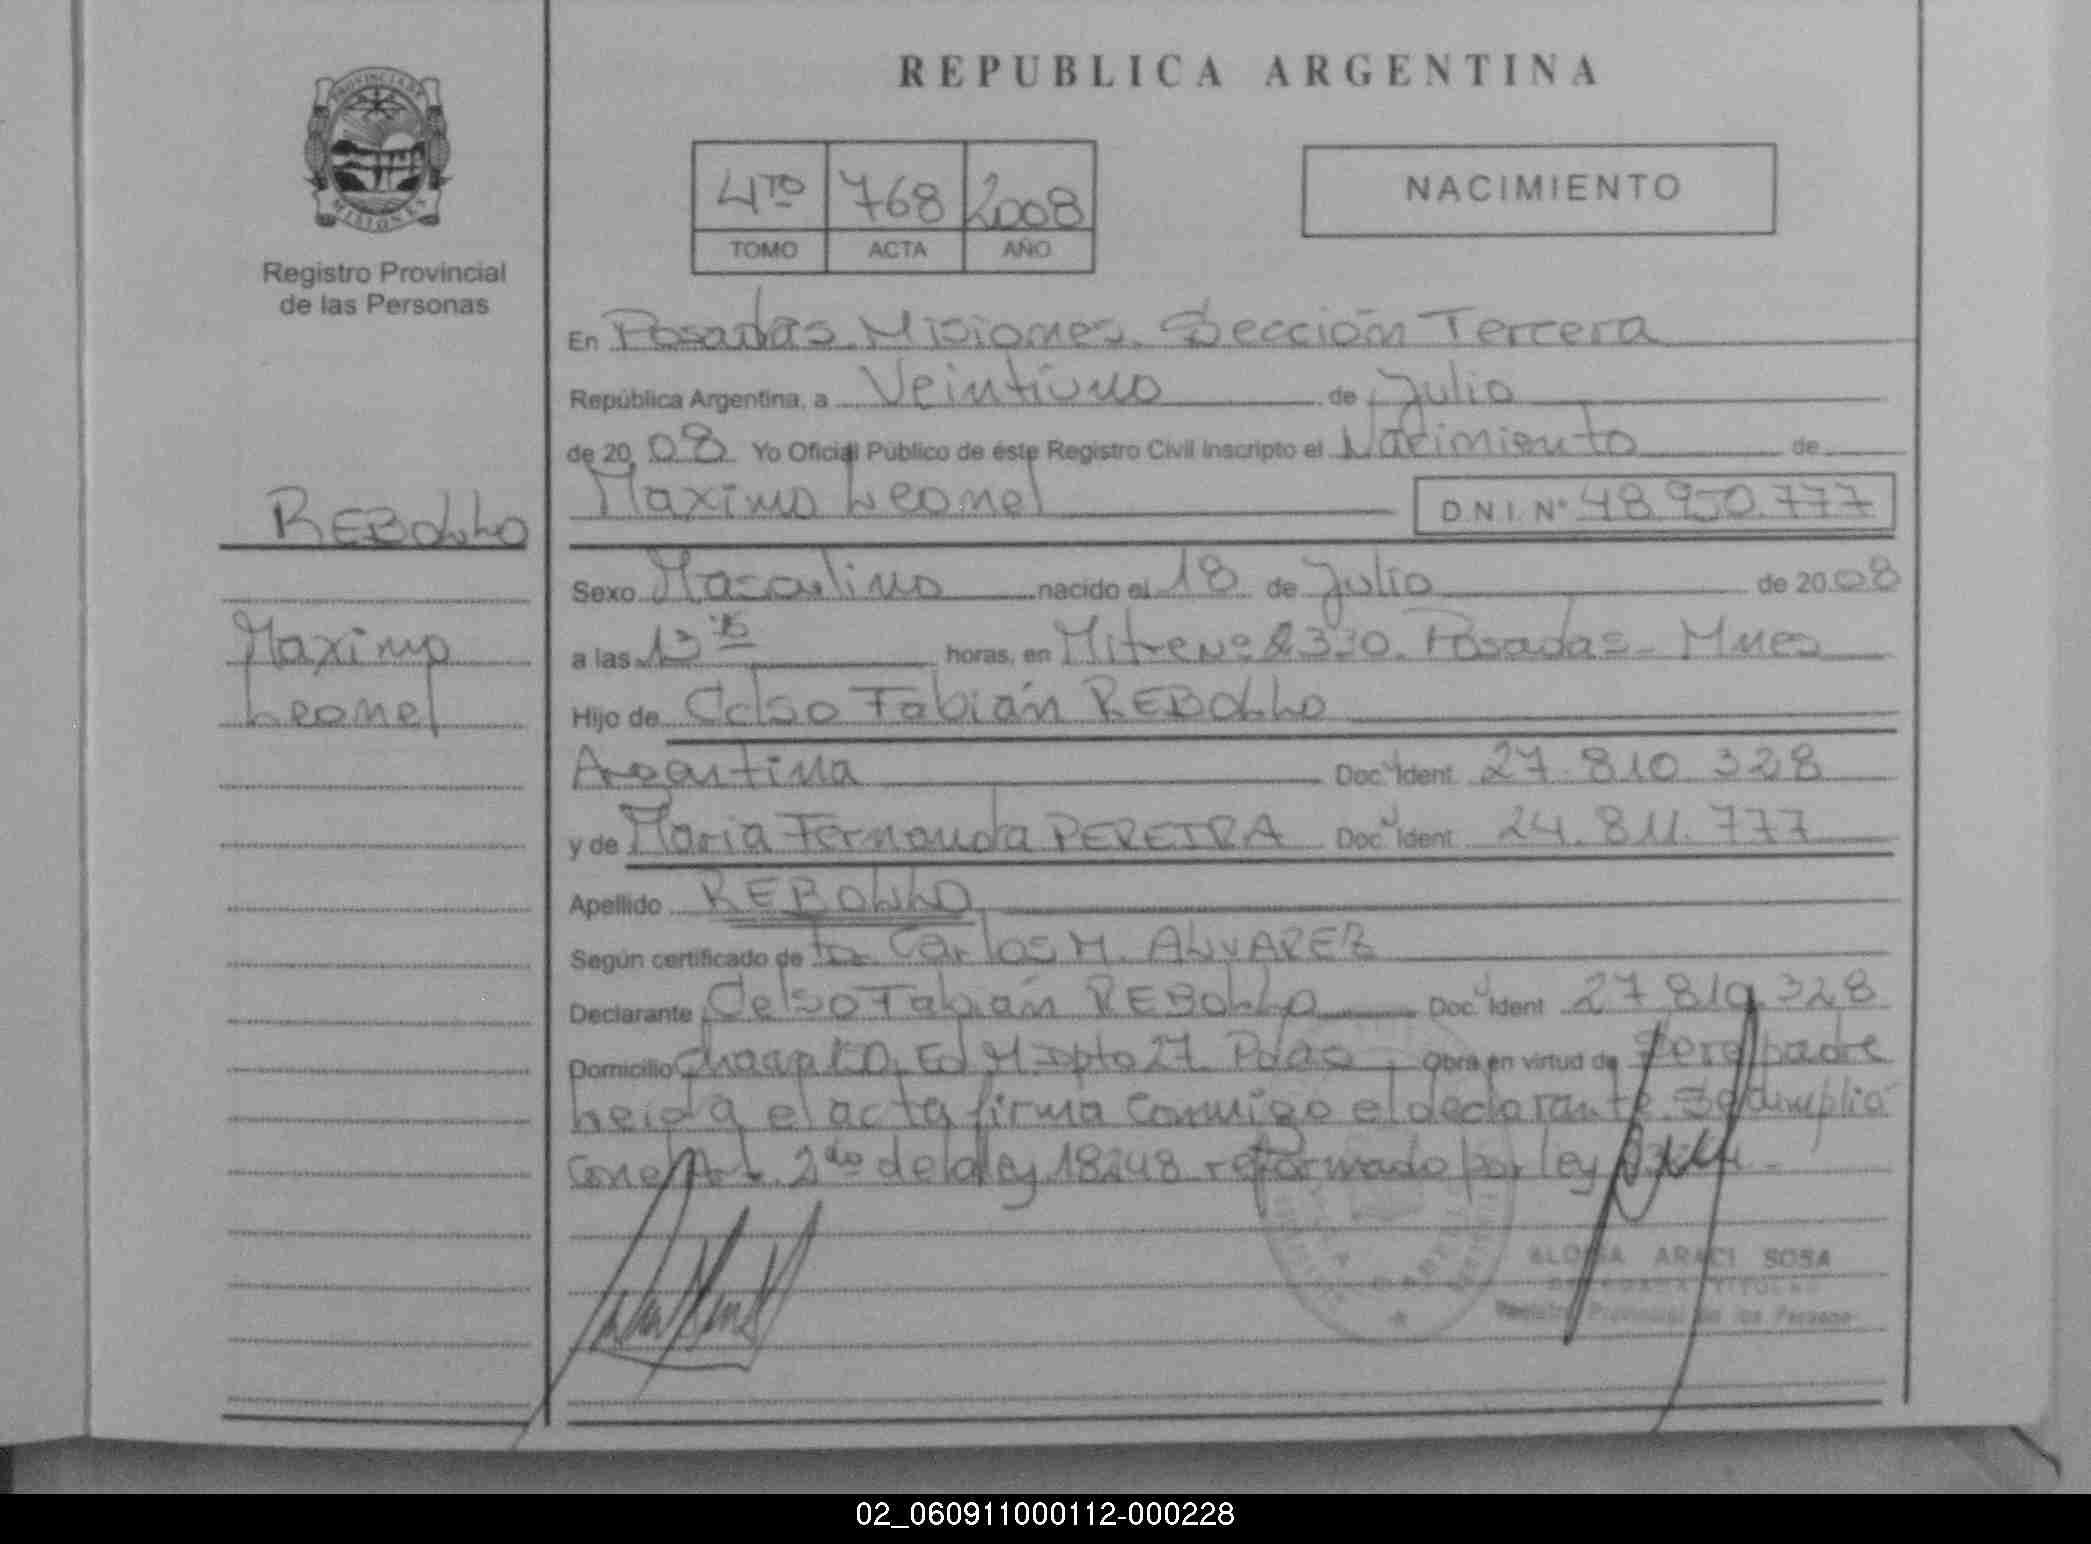 PROVINCIA DE
MISIONES
Registro Provincial
de las Personas
REBOLLO
Maximo
Leonel
REPUBLICA ARGENTINA
4TO 768 2008
TOMO ACTA AÑO
NACIMIENTO
En Posadas. Misiones. Sección Tercera
República Argentina, a Veintiuno de Julio
de 20 08 Yo Oficial Público de éste Registro Civil Inscripto el Nacimiento de
Maximo Leonel D.N.I. Nº 48.950.777
Sexo Masculino nacido el 18 de Julio de 20 08
a las 13 horas, en Mitre Nº 2330. Posadas - Mnes
Hijo de Celso Fabián REBOLLO
Argentina Doc. Ident. 27.810.328
y de Maria Fernanda PEREIRA Doc. Ident. 24.811.777
Apellido REBOLLO
Según certificado de Carlos M. ALVAREZ
Declarante Celso Fabián REBOLLO Doc. Ident. 27.810.328
Domicilio Dpto 27 Pdas Obra en virtud de ser el padre
Leída el acta firma conmigo el declarante. Se cumplió
con el Art. 2do de la ley 18248 reformado por ley
ARACI SOSA
Registro Provincial de las Personas
02_060911000112-000228